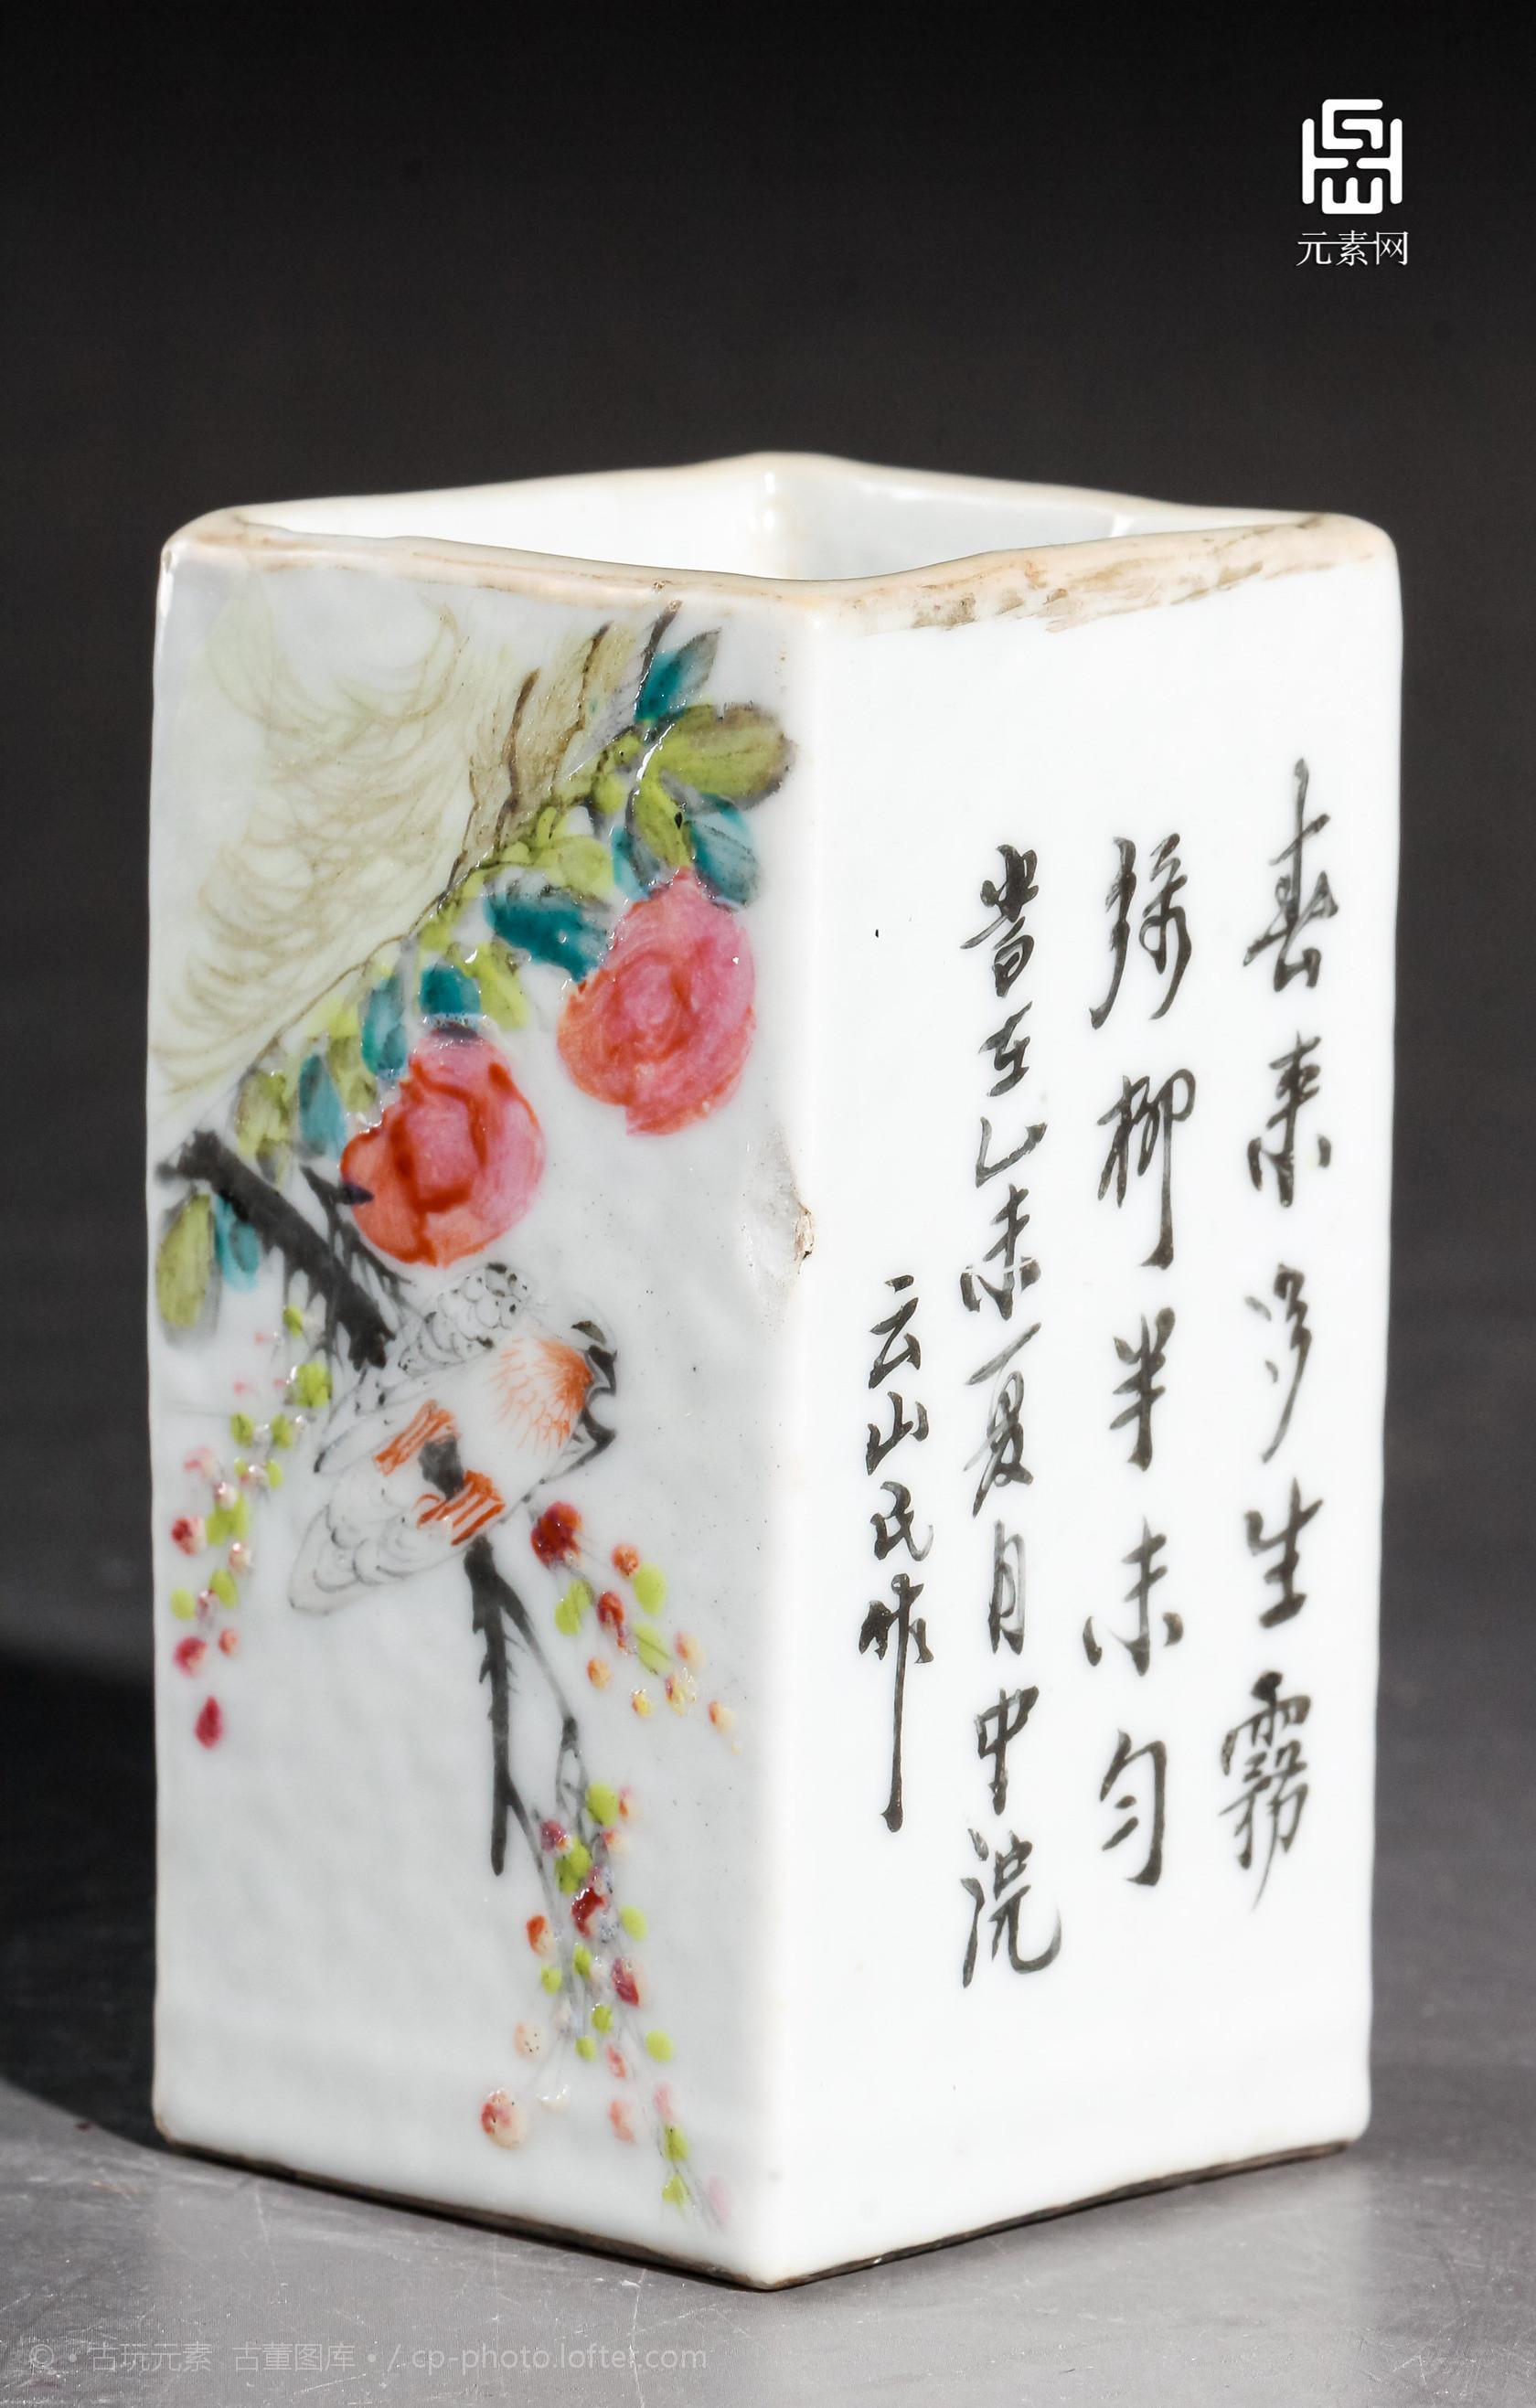 元素网
春来多生霧
绿柳半未匀
岂在乙未夏月中浣
云山氏作
© · 古玩元素 古董图库 · / cp-photo.lofter.com